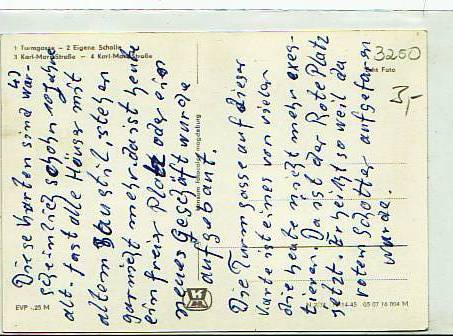 1 Turmgasse – 2 Eigene Scholle
3 Karl-Marx-Straße – 4 Karl-Marx-Straße
3250
Echt Foto
3,-
Diese Karten sind war-
scheinlich schohn
alt. fast alle Häuser mit
altem Baustiel, stehen
garnicht mehr. da ist heute
ein freier Platz oder ein
neues Geschäft wurde
aufgebaut.
Die Turmgasse auf dieser
Karte ist eines von vielen
die heute nicht mehr exes-
tieren. Da ist der Rote Platz
jetzt. Er heißt so weil da
roten Schotter aufgefaren
wurde.
EVP -,25 M
05 07 16 004 M